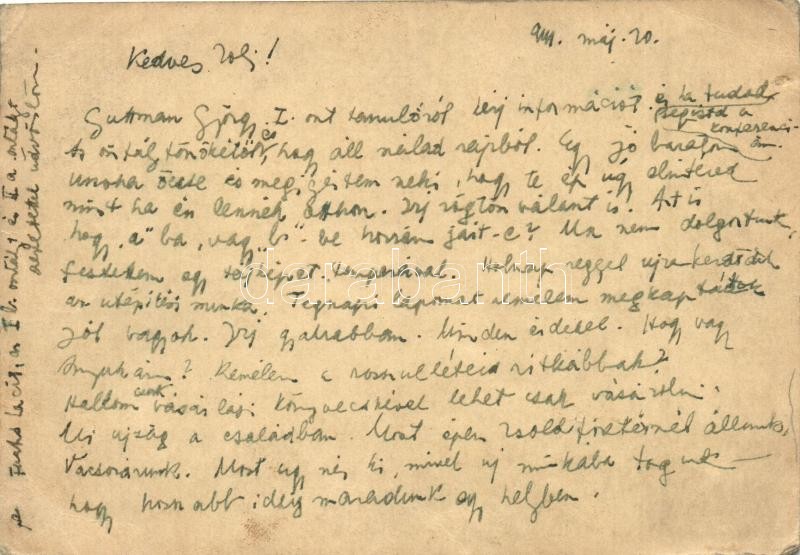 941. máj. 20.
Kedves Zoli!
Guttman György I. ont tanulóról kérj információt és ha tudod
segítsd a
konferenci-
án.
és osztályfőnökétől, hogy áll nálad rajzból. Egy jó barátom
unoka öccse és megigértem neki, hogy te ép úgy elintézed
mint ha én lennék otthon. Irj rögtön választ is. Azt is
hogy "a" ba, vagy "b"-be hozzám járt-e? Ma nem dolgoztunk,
festettem egy térképet temperával. Holnap reggel ujra kezdődik
az utépítési munka. Tegnapi lapomat remélem megkaptátok
jól vagyok. Irj gyakrabban. Minden érdekel. Hogy vagy
Anyukám? Remélem a rosszulléteid ritkábbak?
Hallom cukrot vásárlási könyvecskével lehet csak vásárolni.
Mi ujság a családban. Most épen zsold fizetésnél állunk,
Vacsorázunk. Most ugy néz ki, mivel uj munkába fogunk
hogy hosszabb ideig maradunk egy helyben.